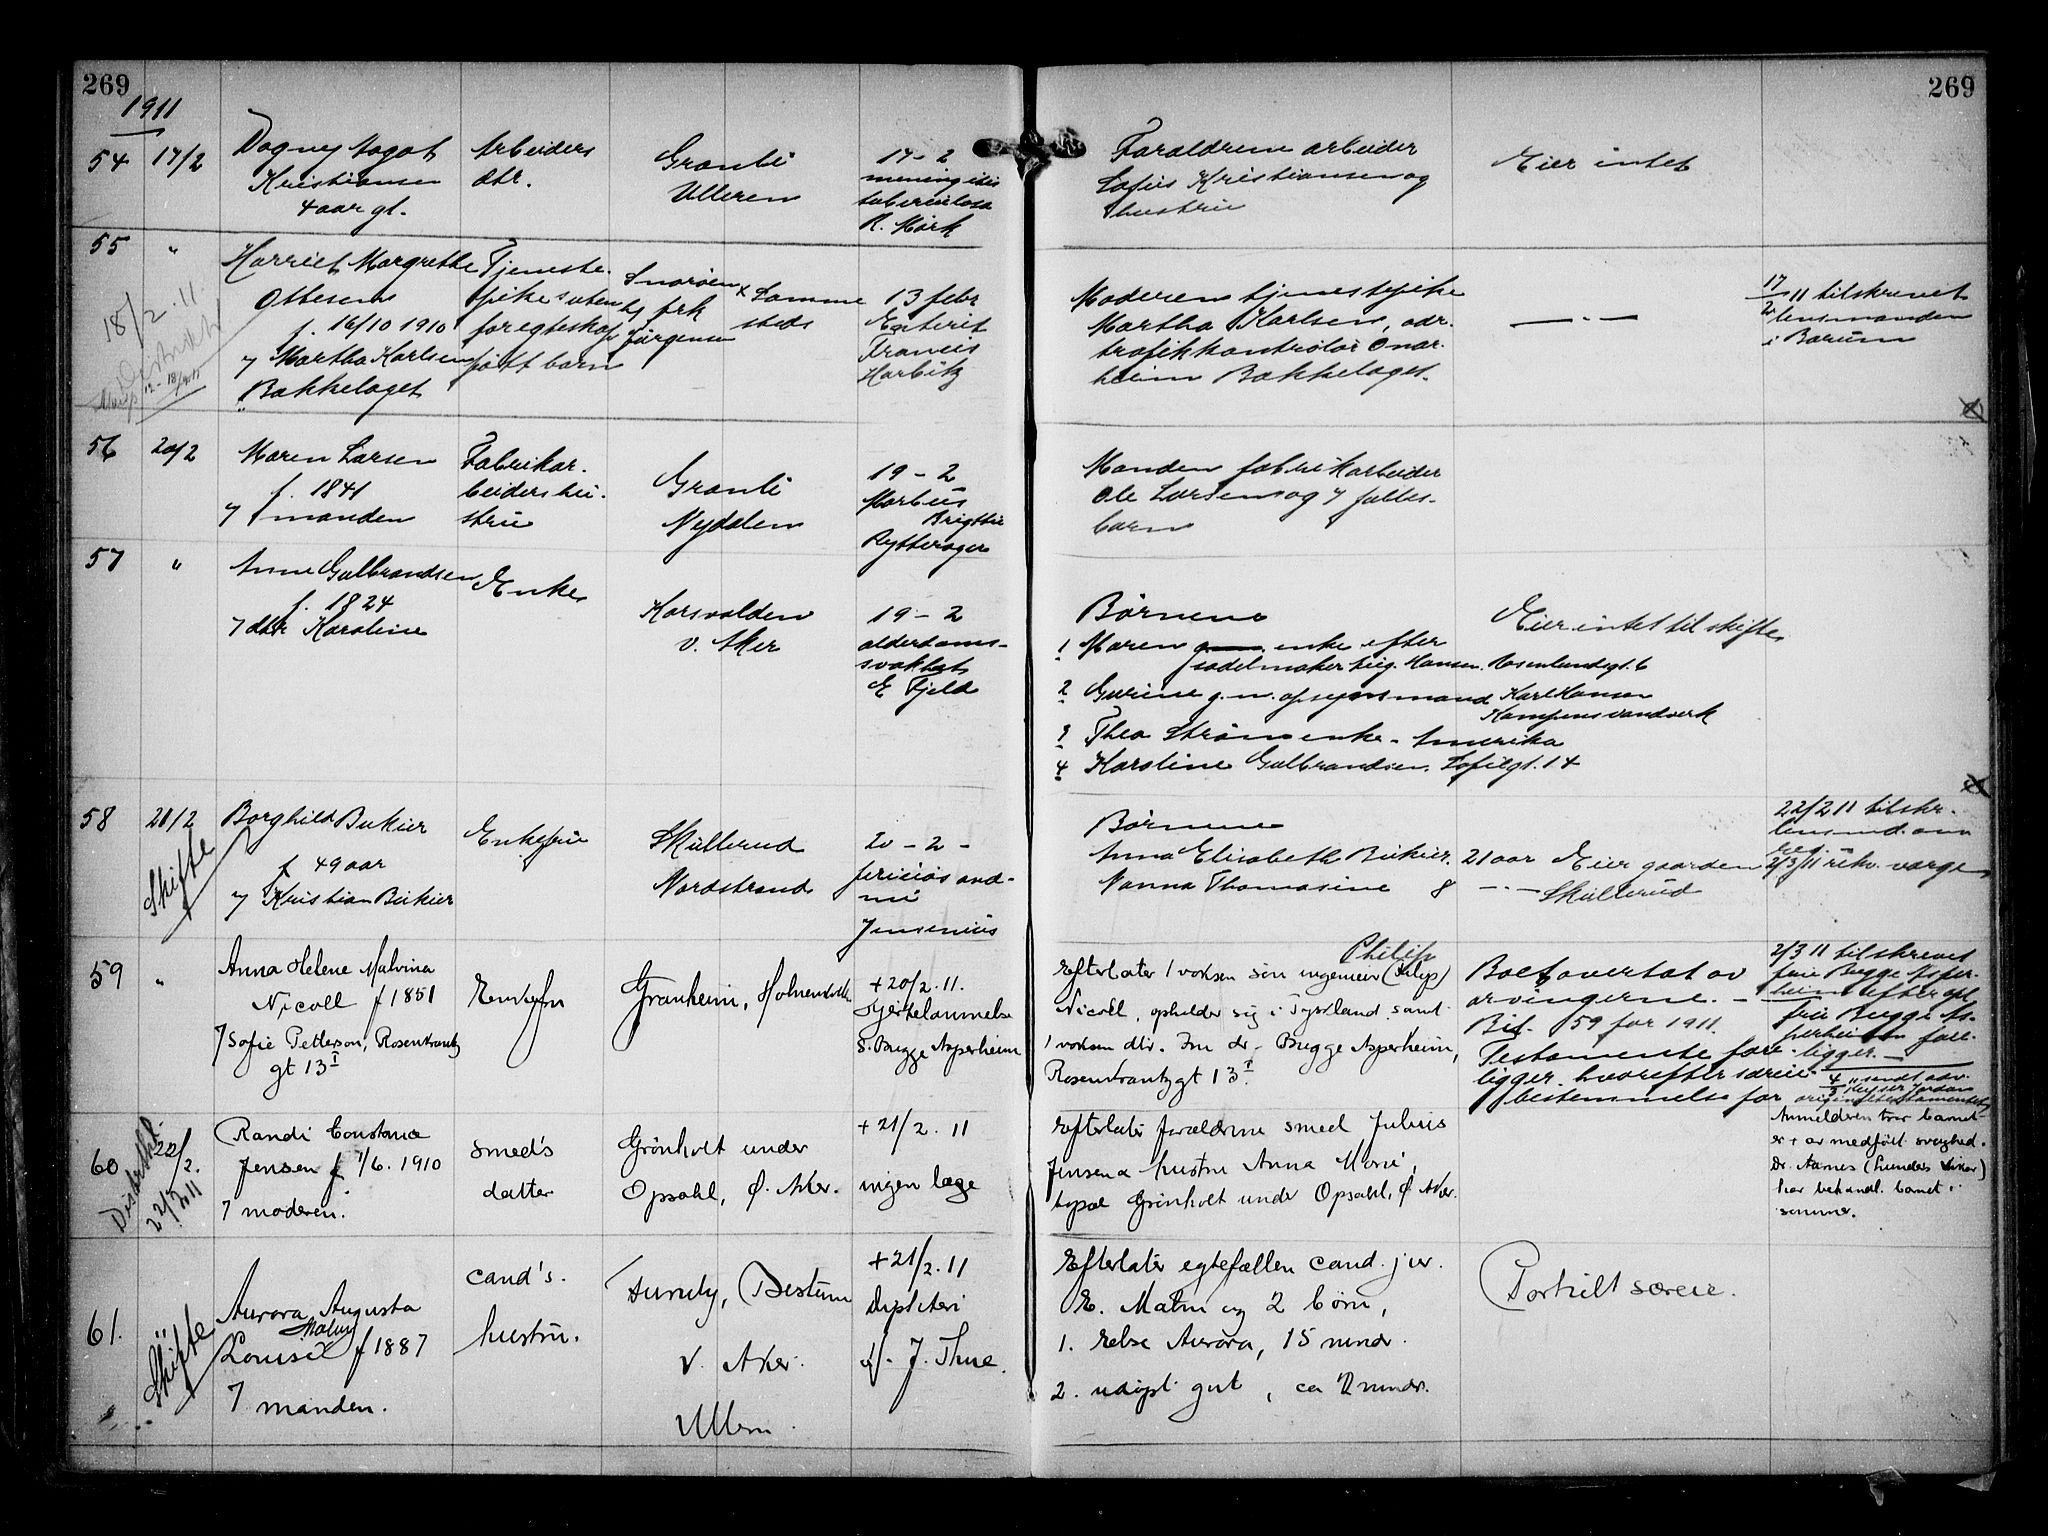 269
269
1911
54 17/2
Dagny Aagot
Kristiansen
4 aar gl.
Arbeiders
dtr.
Granli
Ulleren
17-2
meningitis
tuberculosa
R. Mørk
Foraldrene arbeider
Sofus Kristiansen og
hustru
Eier intet
55 "
18/2.11.
Harriet Margrethe
Ottesen
f. 16/10 1910
7 Martha Karlsen
Bakkelaget
Tjeneste-
pikes uten
foregteskap
født barn
Snarøen
frk
Jørgensen
Samme
steds
13 febr
Enterit
Francis
Harbitz
Moderen tjenestepike
Martha Karlsen, adr.
trafikkontrolør Onar-
heim Bakkelaget.
— " —
17/2 11 tilskrevet
lensmanden
i Bærum
56 20/2
Maren Larsen
f. 1841
7 manden
Fabrikar-
beiders hu-
stru
Granli
Nydalen
19-2
Morbus
Brigthii
Rytterager
Manden fabrikarbeider
Ole Larsen og 7 fælles-
barn
57 "
Anne Gulbrandsen
f. 1824
7 dtr Karoline
Enke
Korsvolden
v. Aker
19-2
alderdoms-
svakhet
E Fjeld
Børnene
Eier intet til skifte
1 Maren enke efter
sadelmaker Hansen. Rosenlundsgt. 6
2 Gurine g. m. opsynsmand Karl Hansen
Kampens vandverk
3 Thea Strøm enke - Amerika
4 Karoline Gulbrandsen. Sofiegt. 14
58 21/2
Skifte
Borghild Bukier
f 49 aar
7 Kristian Bukier
Enkefrue
Skullerud
Nordstrand
20-2-
perniciøs anæ-
mi
Jensenius
Børnene
Anna Elisabeth Bukier 21 aar
Nanna Thomasine 8 — " —
Eier gaarden
Skullerud
22/2 11 tilskr.
lensmd. om
reg. —
2/3 11 rekv. værge
59 "
Anna Helene Malvina
Nicoll f 1851
7 Sofie Petterson, Rosenkrantz
gt 13 I
Enkefru
Granheim, Holmenkollen
+ 20/2. 11.
Hjertelammelse
S. Bugge Asperheim
Philip
Efterlater 1 voksen søn ingeniør (Filip)
Nicoll, opholder sig i Tyskland samt
1 voksen dtr. Fru dr. Bugge Asperheim,
Rosenkrantzgt 13 I.
Boet overtat av
arvingerne. —
Bil. 59 for 1911.
Testamente fore-
ligger. hvorefter særeie-
bestemmelse for
2/3 11 tilskrevet
frue Bugge Asper-
heim efter opl.
frue Bugge As-
perheim fore-
ligger. —
60 22/2.
22/2 11
Randi Constance
Jensen f 1/6. 1910
7 moderen.
smed's
datter
Grønholt under
Opsahl, Ø. Aker.
+ 21/2. 11
ingen læge
Efterlater forældrene smed Julius
Jensen a hustru Anna Marie,
bopæl Grønholt under Opsahl, Ø Aker.
Anmelderen tror barnet
er + av medfødt svaghed.
Dr. Aarnes (Lunders vikar)
har behandl. barnet i
sommer.
61. "
Skifte
Aurora Augusta
Malm
Louise f 1887
7 manden.
cand's.
hustru.
Furuly, Bestum
V. Aker.
Ullern
+ 21/2. 11
Diphteri
d. J. Thue.
Efterlater egtefællen cand. jur.
E. Malm og 2 børn,
1. Else Aurora, 15 mndr.
2. udøpt gut, ca 2 mndr.
Forhilt særeie.